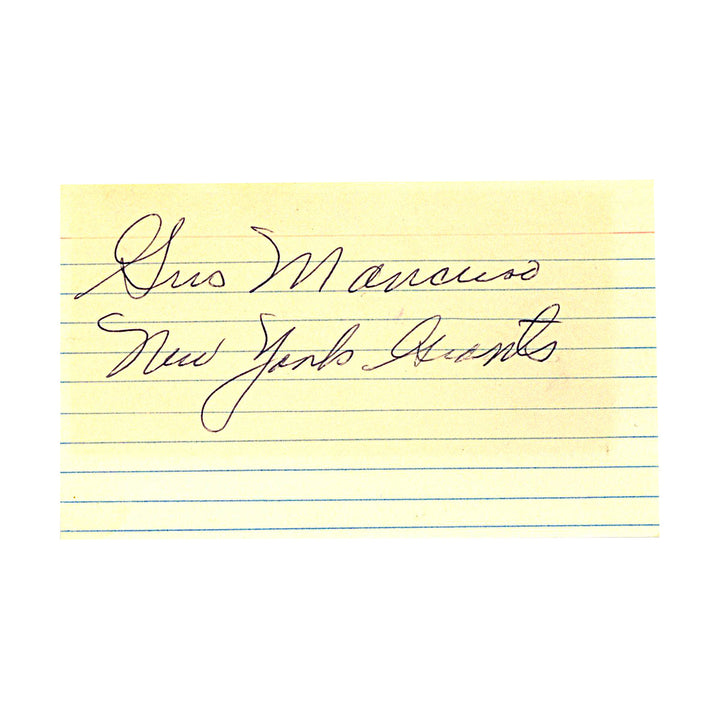 Gus Mancuso
New York Giants